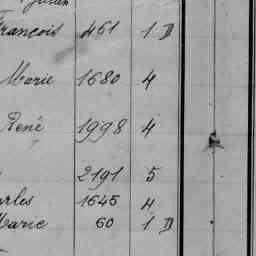 Julien
François 461 1 D
Marie 1680 4
René 1998 4
2191 5
arles 1645 4
Marie 60 1 D